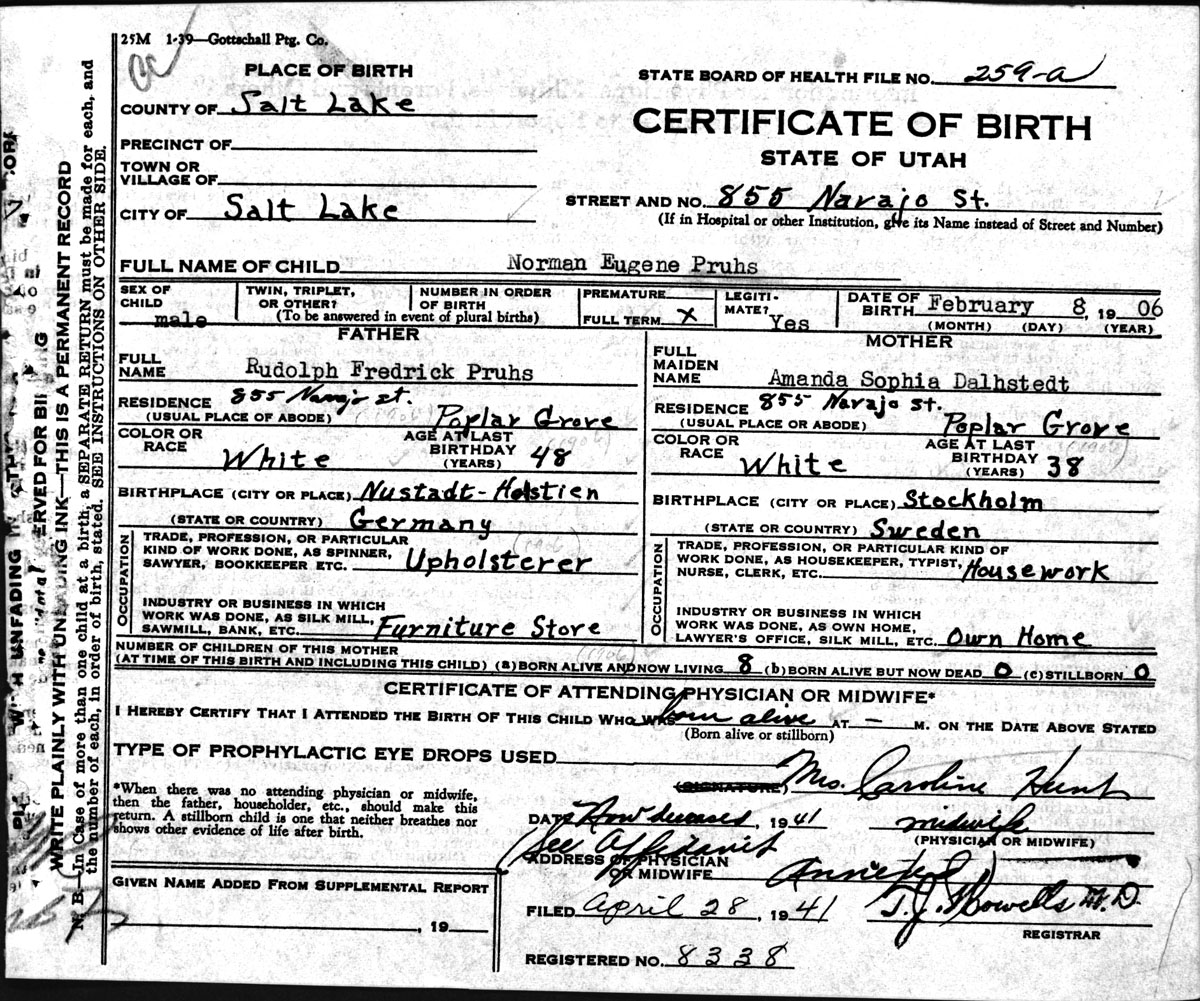 25M 1-39—Gottschall Ptg. Co.
PLACE OF BIRTH
STATE BOARD OF HEALTH FILE NO. 259-a
COUNTY OF Salt Lake
CERTIFICATE OF BIRTH
PRECINCT OF
STATE OF UTAH
TOWN OR
VILLAGE OF
STREET AND NO. 855 Navajo St.
CITY OF Salt Lake
(If in Hospital or other Institution, give its Name instead of Street and Number)
FULL NAME OF CHILD Norman Eugene Pruhs
SEX OF CHILD male
TWIN, TRIPLET, OR OTHER?
NUMBER IN ORDER OF BIRTH
(To be answered in event of plural births)
PREMATURE
FULL TERM X
LEGITIMATE? Yes
DATE OF BIRTH February 8, 19 06
(MONTH) (DAY) (YEAR)
FATHER
FULL NAME Rudolph Fredrick Pruhs
RESIDENCE 855 Navajo st.
(USUAL PLACE OF ABODE) Poplar Grove
COLOR OR RACE White
AGE AT LAST BIRTHDAY (YEARS) 48
BIRTHPLACE (CITY OR PLACE) Nustadt-Holstien
(STATE OR COUNTRY) Germany
OCCUPATION
TRADE, PROFESSION, OR PARTICULAR
KIND OF WORK DONE, AS SPINNER,
SAWYER, BOOKKEEPER ETC. Upholsterer
INDUSTRY OR BUSINESS IN WHICH
WORK WAS DONE, AS SILK MILL,
SAWMILL, BANK, ETC. Furniture Store
MOTHER
FULL MAIDEN NAME Amanda Sophia Dalhstedt
RESIDENCE 855 Navajo st.
(USUAL PLACE OR ABODE) Poplar Grove
COLOR OR RACE White
AGE AT LAST BIRTHDAY (YEARS) 38
BIRTHPLACE (CITY OR PLACE) Stockholm
(STATE OR COUNTRY) Sweden
OCCUPATION
TRADE, PROFESSION, OR PARTICULAR KIND OF
WORK DONE, AS HOUSEKEEPER, TYPIST,
NURSE, CLERK, ETC. Housework
INDUSTRY OR BUSINESS IN WHICH
WORK WAS DONE, AS OWN HOME,
LAWYER'S OFFICE, SILK MILL, ETC. Own Home
NUMBER OF CHILDREN OF THIS MOTHER
(AT TIME OF THIS BIRTH AND INCLUDING THIS CHILD) (a) BORN ALIVE AND NOW LIVING 8 (b) BORN ALIVE BUT NOW DEAD 0 (c) STILLBORN 0
CERTIFICATE OF ATTENDING PHYSICIAN OR MIDWIFE*
I HEREBY CERTIFY THAT I ATTENDED THE BIRTH OF THIS CHILD WHO WAS born alive AT — M. ON THE DATE ABOVE STATED
(Born alive or stillborn)
TYPE OF PROPHYLACTIC EYE DROPS USED
*When there was no attending physician or midwife,
then the father, householder, etc., should make this
return. A stillborn child is one that neither breathes nor
shows other evidence of life after birth.
(SIGNATURE) Mrs. Caroline Hunt
DATE Now deceased, 19 41 midwife
(PHYSICIAN OR MIDWIFE)
(See Affidavit
ADDRESS OF PHYSICIAN
OR MIDWIFE
GIVEN NAME ADDED FROM SUPPLEMENTAL REPORT
, 19
FILED April 28, 19 41 T.J. Howells M.D.
REGISTRAR
REGISTERED NO. 8338
WRITE PLAINLY WITH UNFADING INK—THIS IS A PERMANENT RECORD
N. B.—In Case of more than one child at a birth, a SEPARATE RETURN must be made for each, and
the number of each, in order of birth, stated. SEE INSTRUCTIONS ON OTHER SIDE.